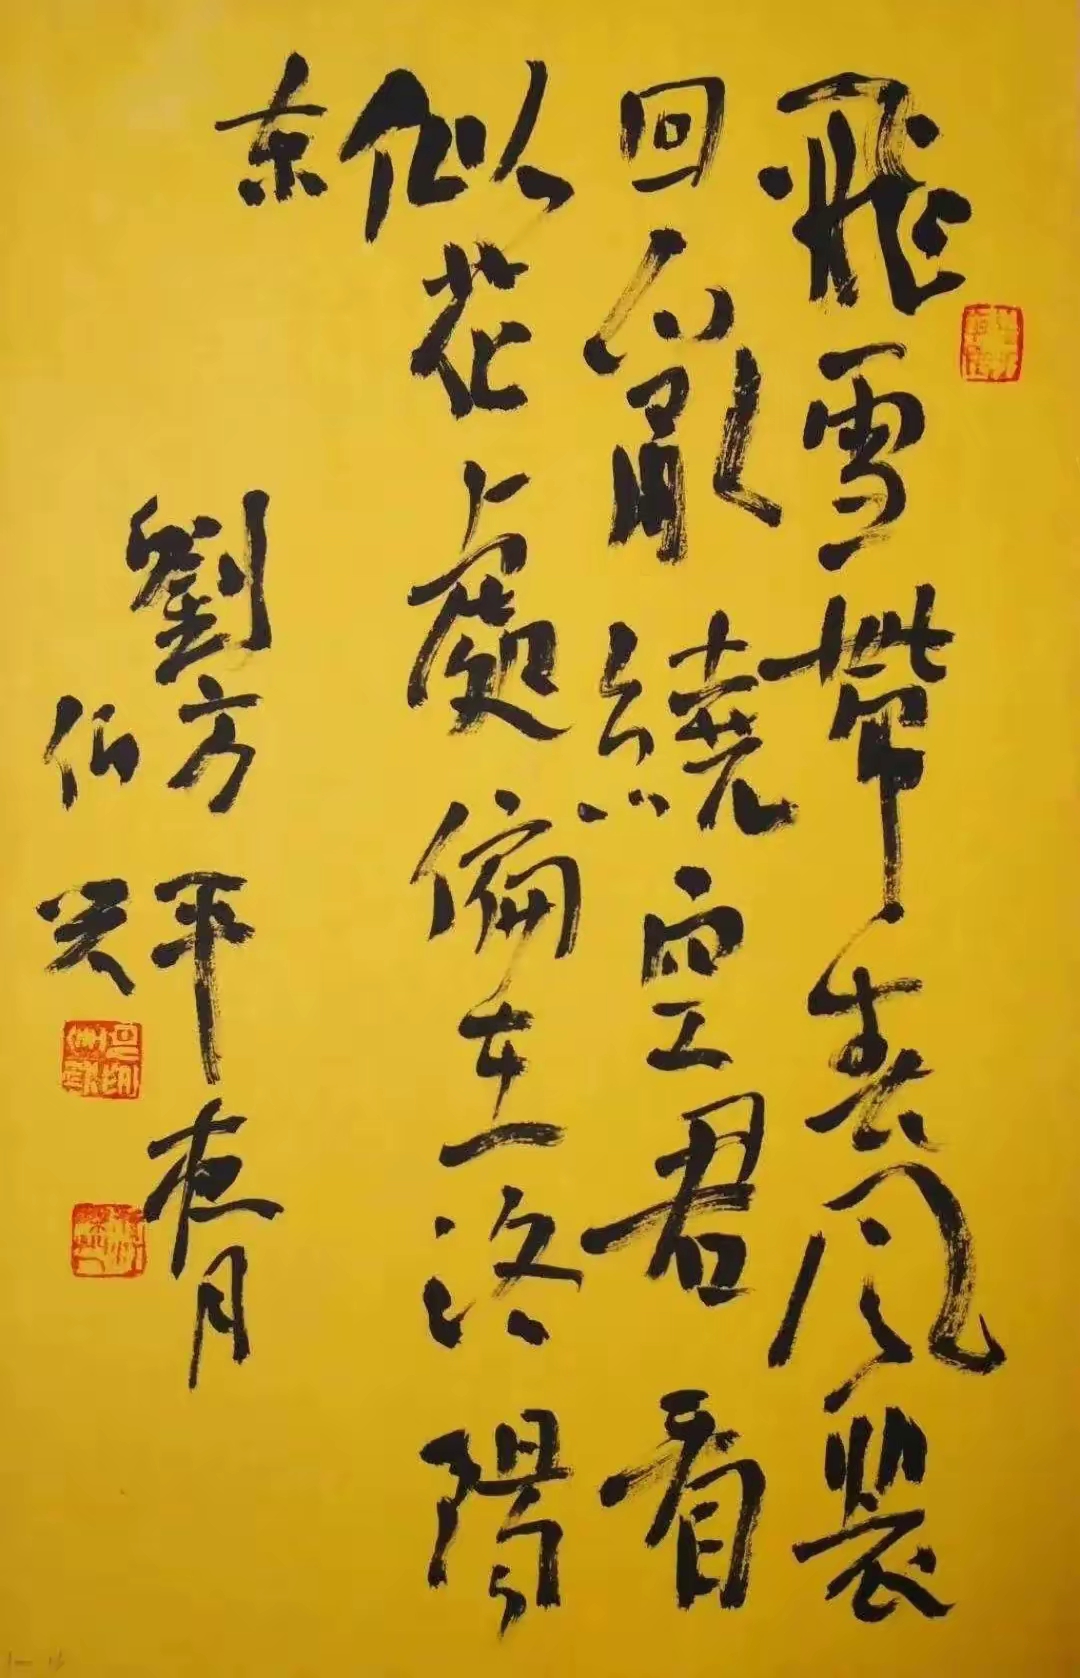 飛雪帶春風裴
回亂繞空君看
似花處偏在洛陽
東
劉方平夜月